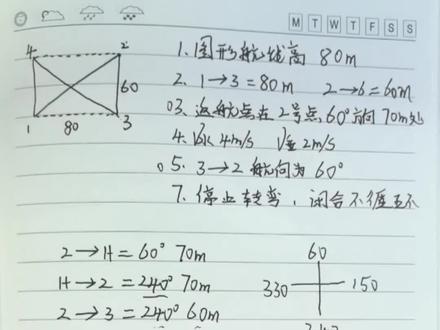 M T W T F S S
4 2
60
1 80 3
1. 图形航线高 80m
2. 1→3=80m 2→6=60m
3. 返航点在2号点, 60°方向 70m处
4. 4m/s V垂 2m/s
5. 3→2 航向为 60°
7. 停止转弯, 闭合不循环
2→H=60° 70m
H→2=240° 70m
2→3=240° 60m
60
330 150